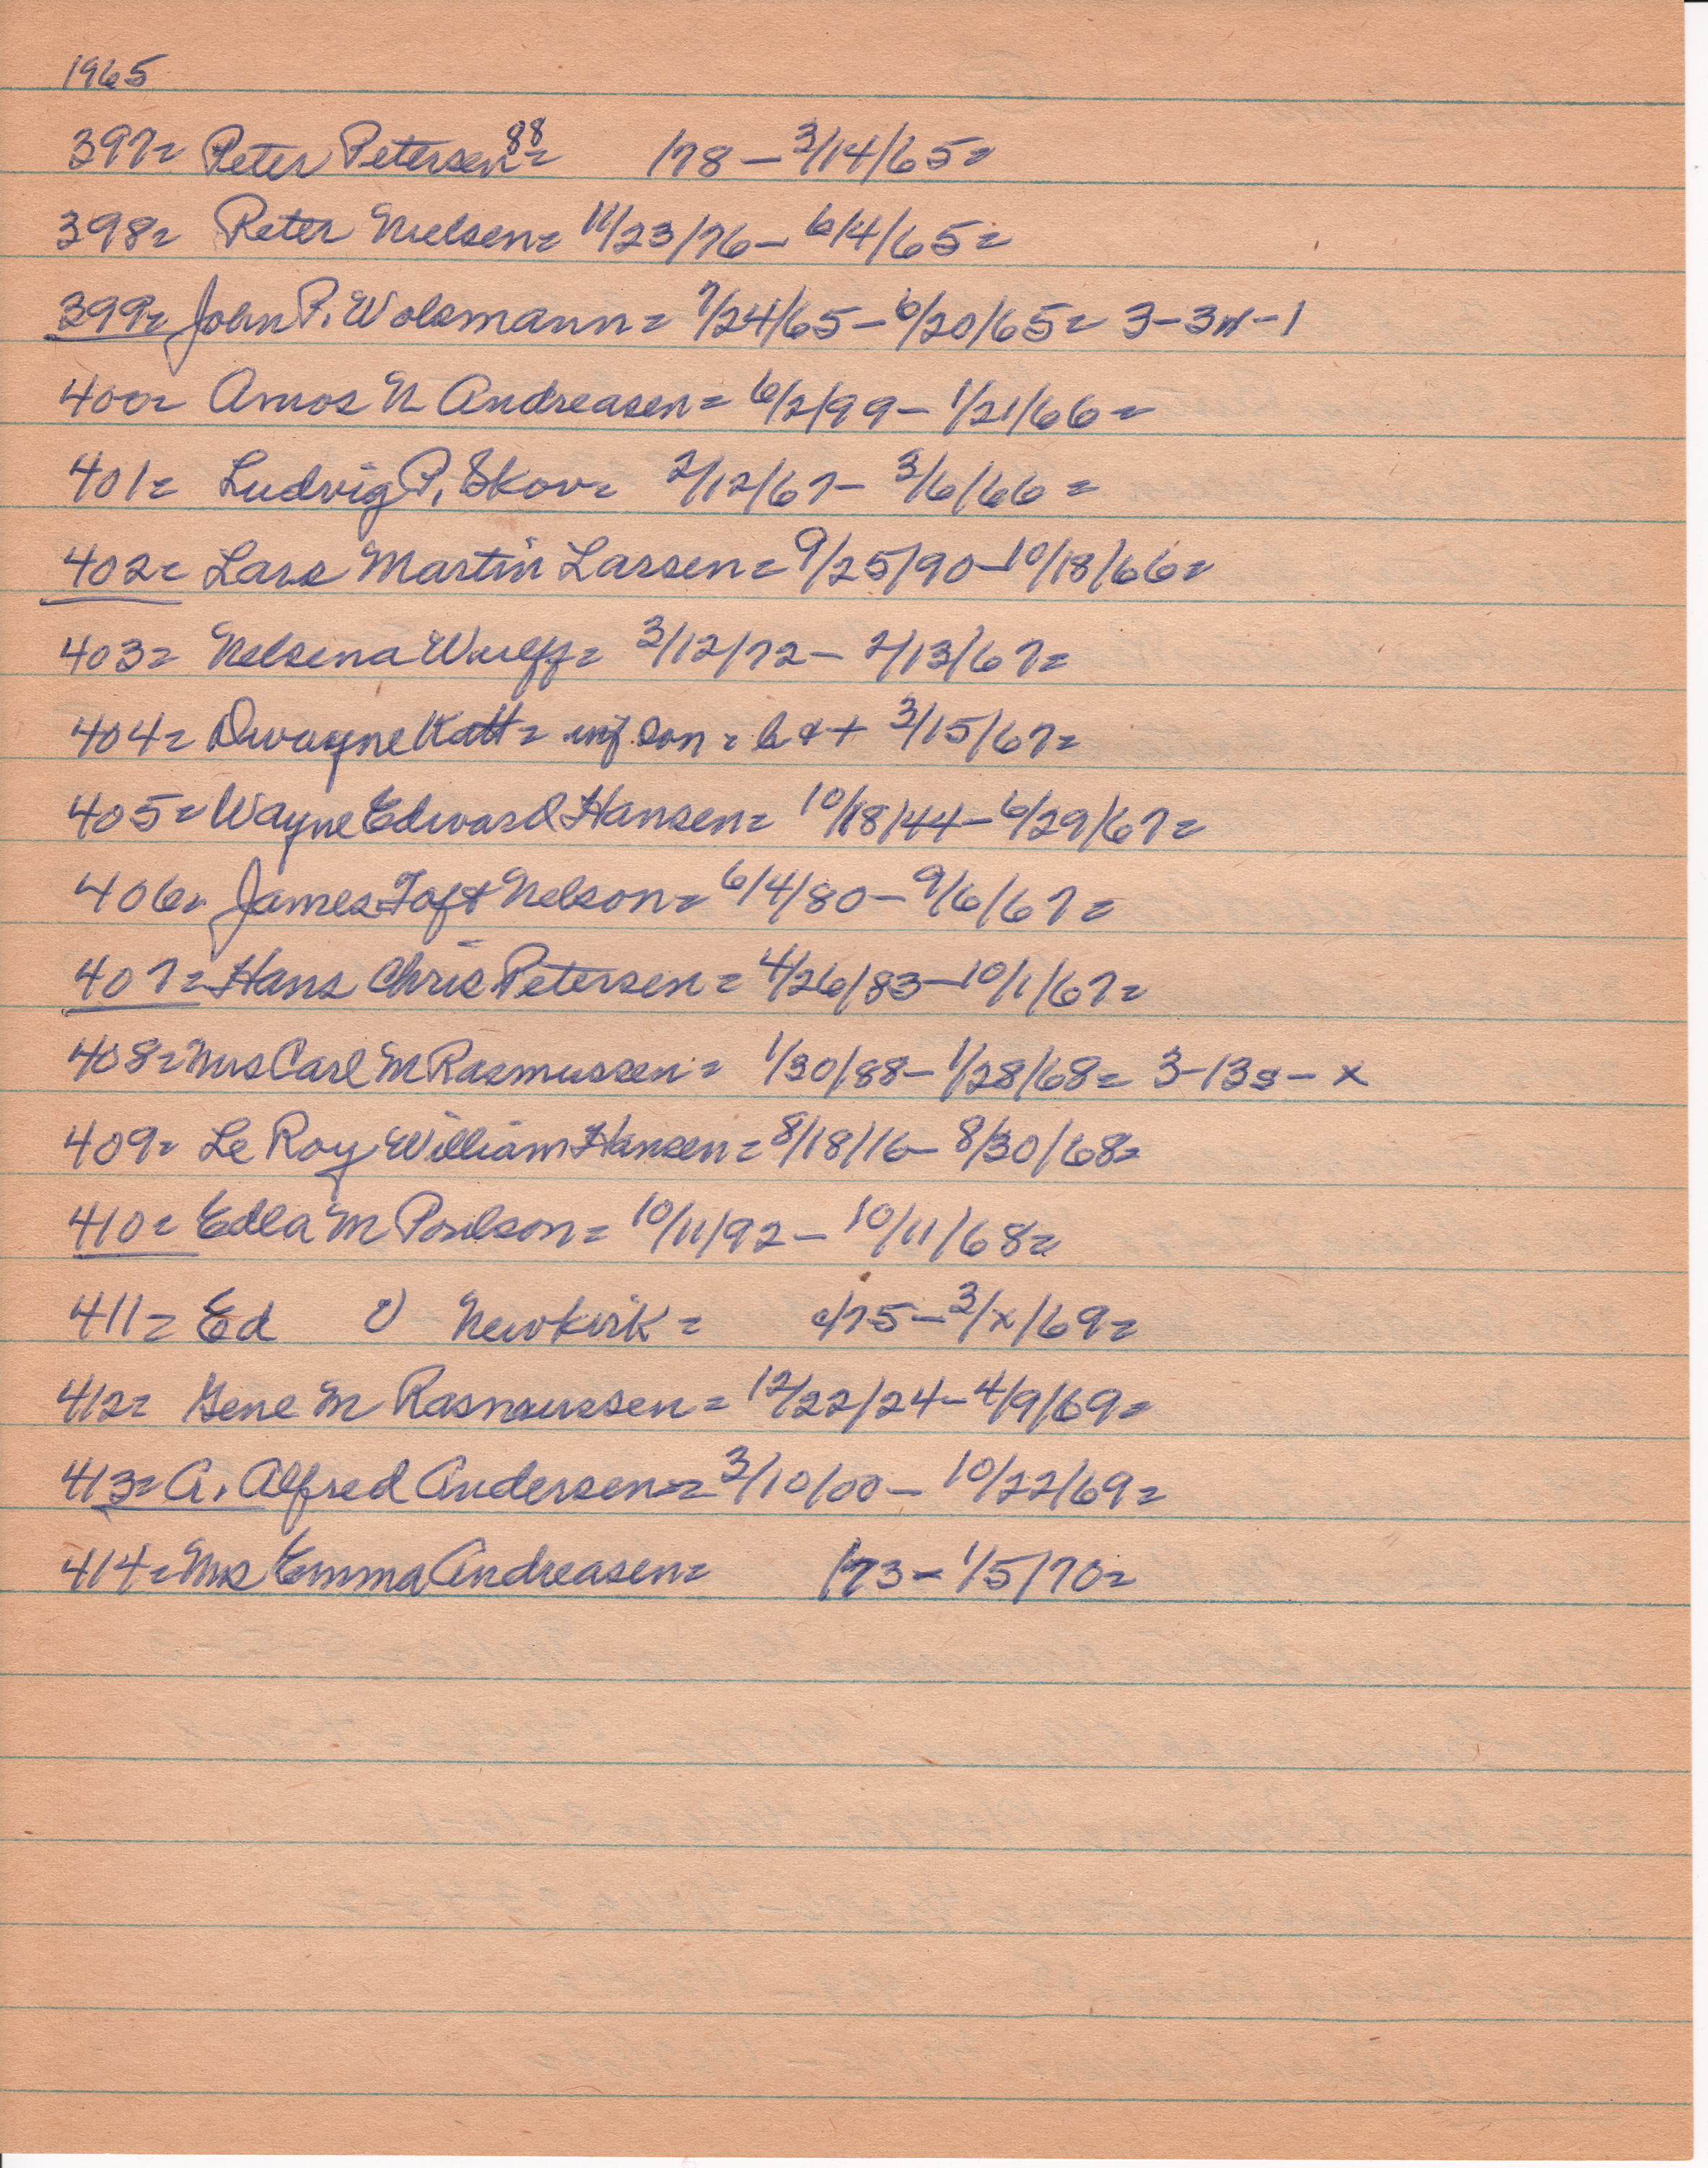 1965
397= Peter Petersen 88= 178 - 3/14/65=
398= Peter Nielsen= 11/23/76 - 6/4/65=
399= John P. Wolsmann= 7/24/65 - 6/20/65= 3-3N-1
400= Amos N Andreasen= 6/2/99 - 1/21/66=
401= Ludvig P. Skov= 2/12/67 - 3/6/66=
402= Lars Martin Lassen= 9/25/90 - 10/18/66=
403= Nelsena Wulff= 3/12/72 - 2/13/67=
404= Dwayne Katt= inf. son = b & + 3/15/67=
405= Wayne Edward Hansen= 10/18/44 - 6/29/67=
406= James Toft Nelson= 6/4/80 - 9/6/67=
407= Hans Chris Petersen= 4/26/83 - 10/1/67=
408= Mrs Carl M Rasmussen= 1/30/88 - 1/28/68= 3-13s-x
409= Le Roy William Hansen= 8/18/16 - 8/30/68=
410= Edla M Poulson= 10/11/92 - 10/11/68=
411= Ed Newkirk= /75 - 3/x/69=
412= Gene M Rasmussen= 12/22/24 - 4/9/69=
413= A. Alfred Andersen= 3/10/00 - 10/22/69=
414= Mrs Emma Andreasen= /73 - 1/5/70=